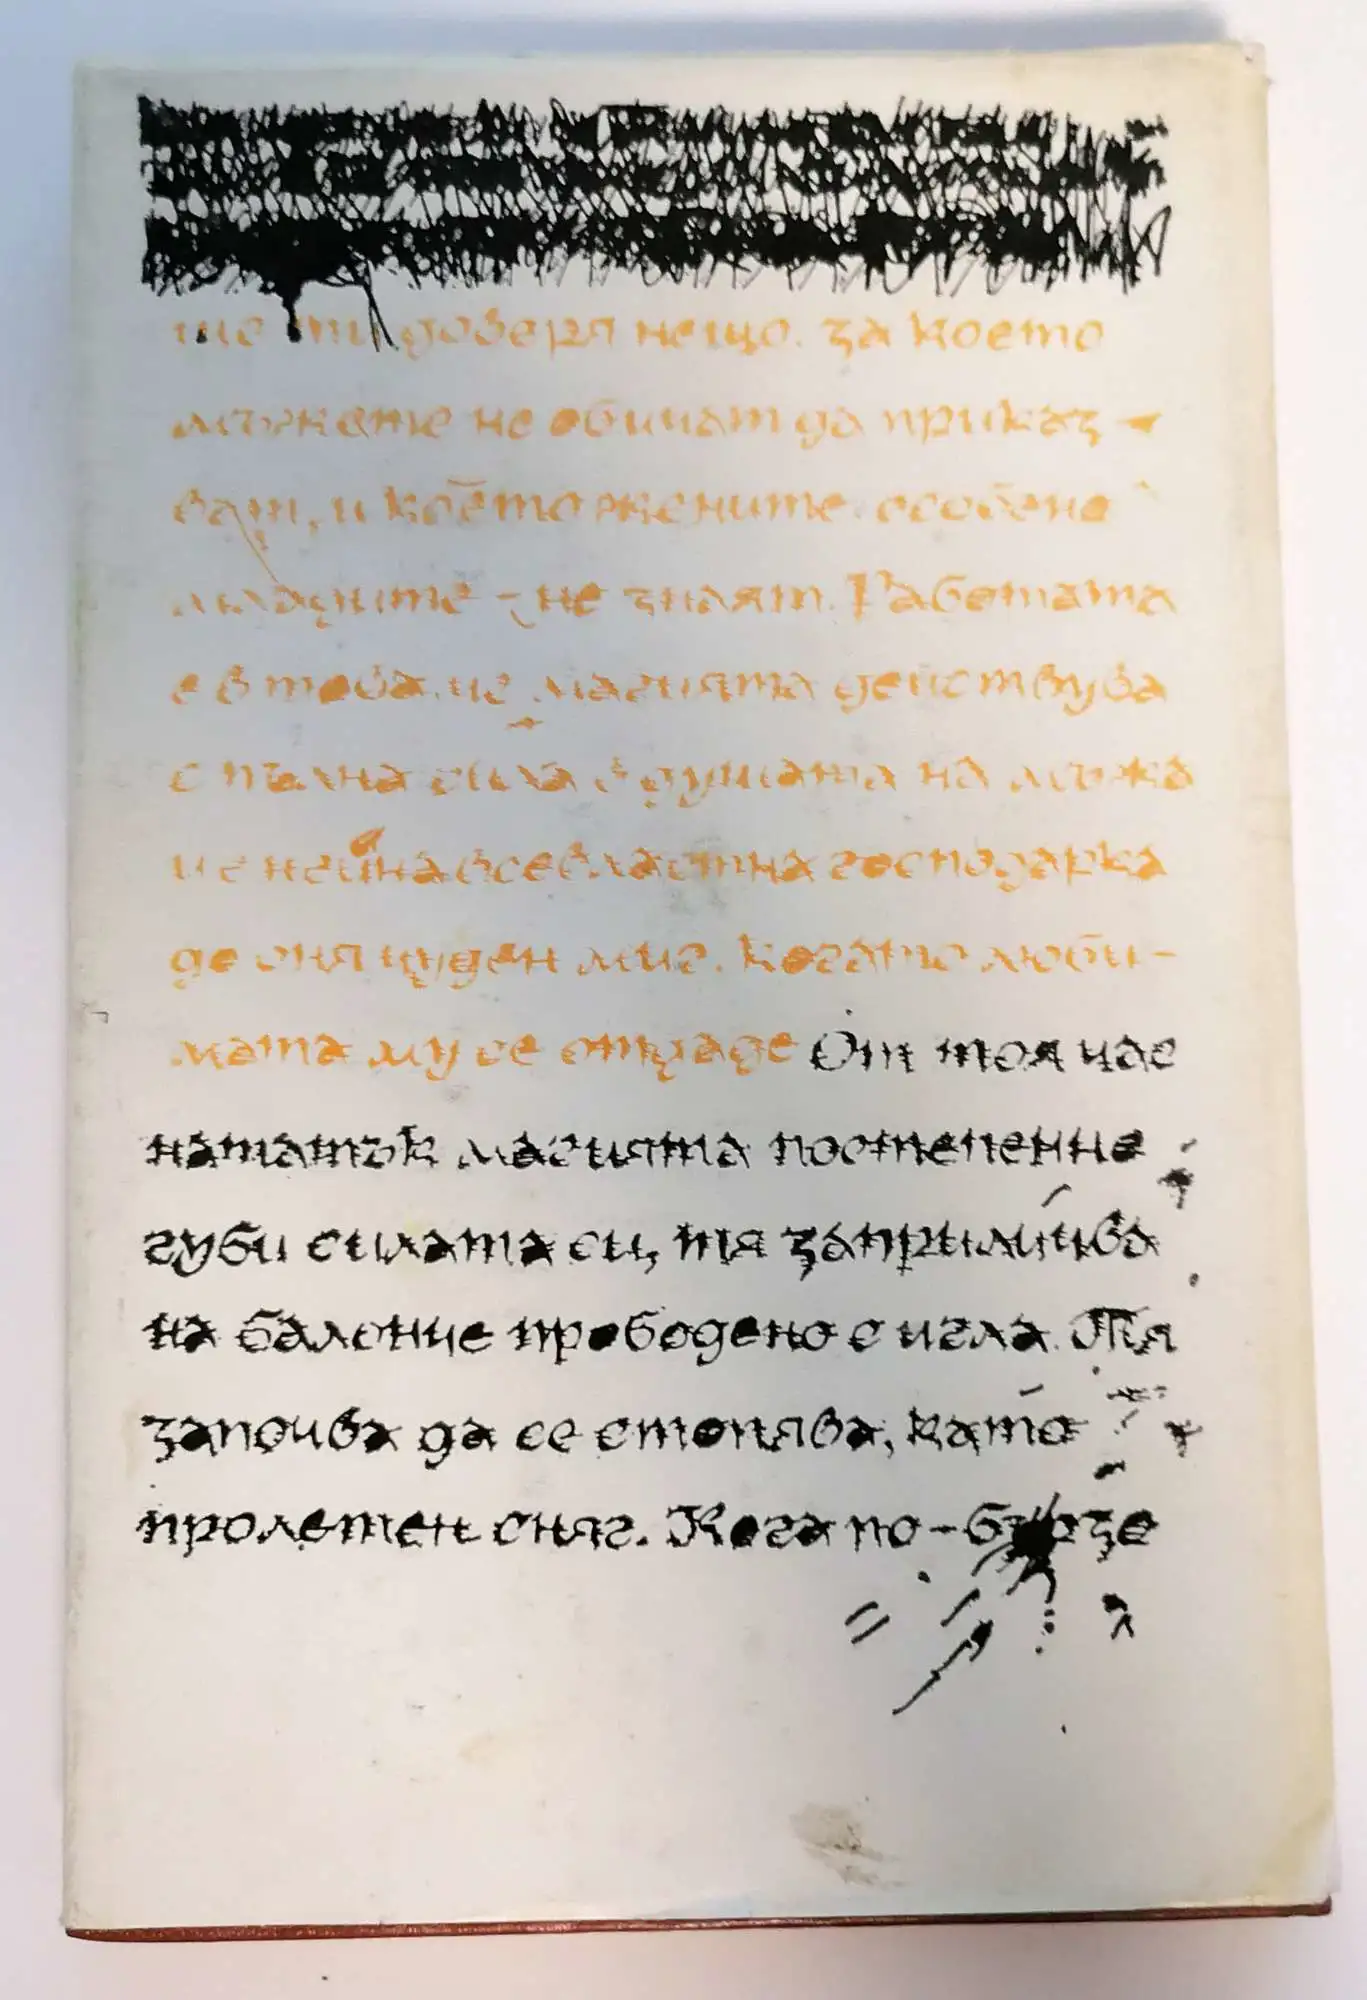 ще ти доверя нещо, за което
мъжете не обичат да приказ-
ват, и което жените, особено
младите - не знаят. Работата
е в това, че магията действува
с пълна сила в душата на мъжа
и е негйна всевластна господарка
до оня чуден миг, когато люби-
мата му се отдаде От тоя час
нататък магията постепенно
губи силата си, тя заприлича
на балонче прободено с игла. Тя
започва да се стопява, като
пролетен сняг. Кога по-бързо